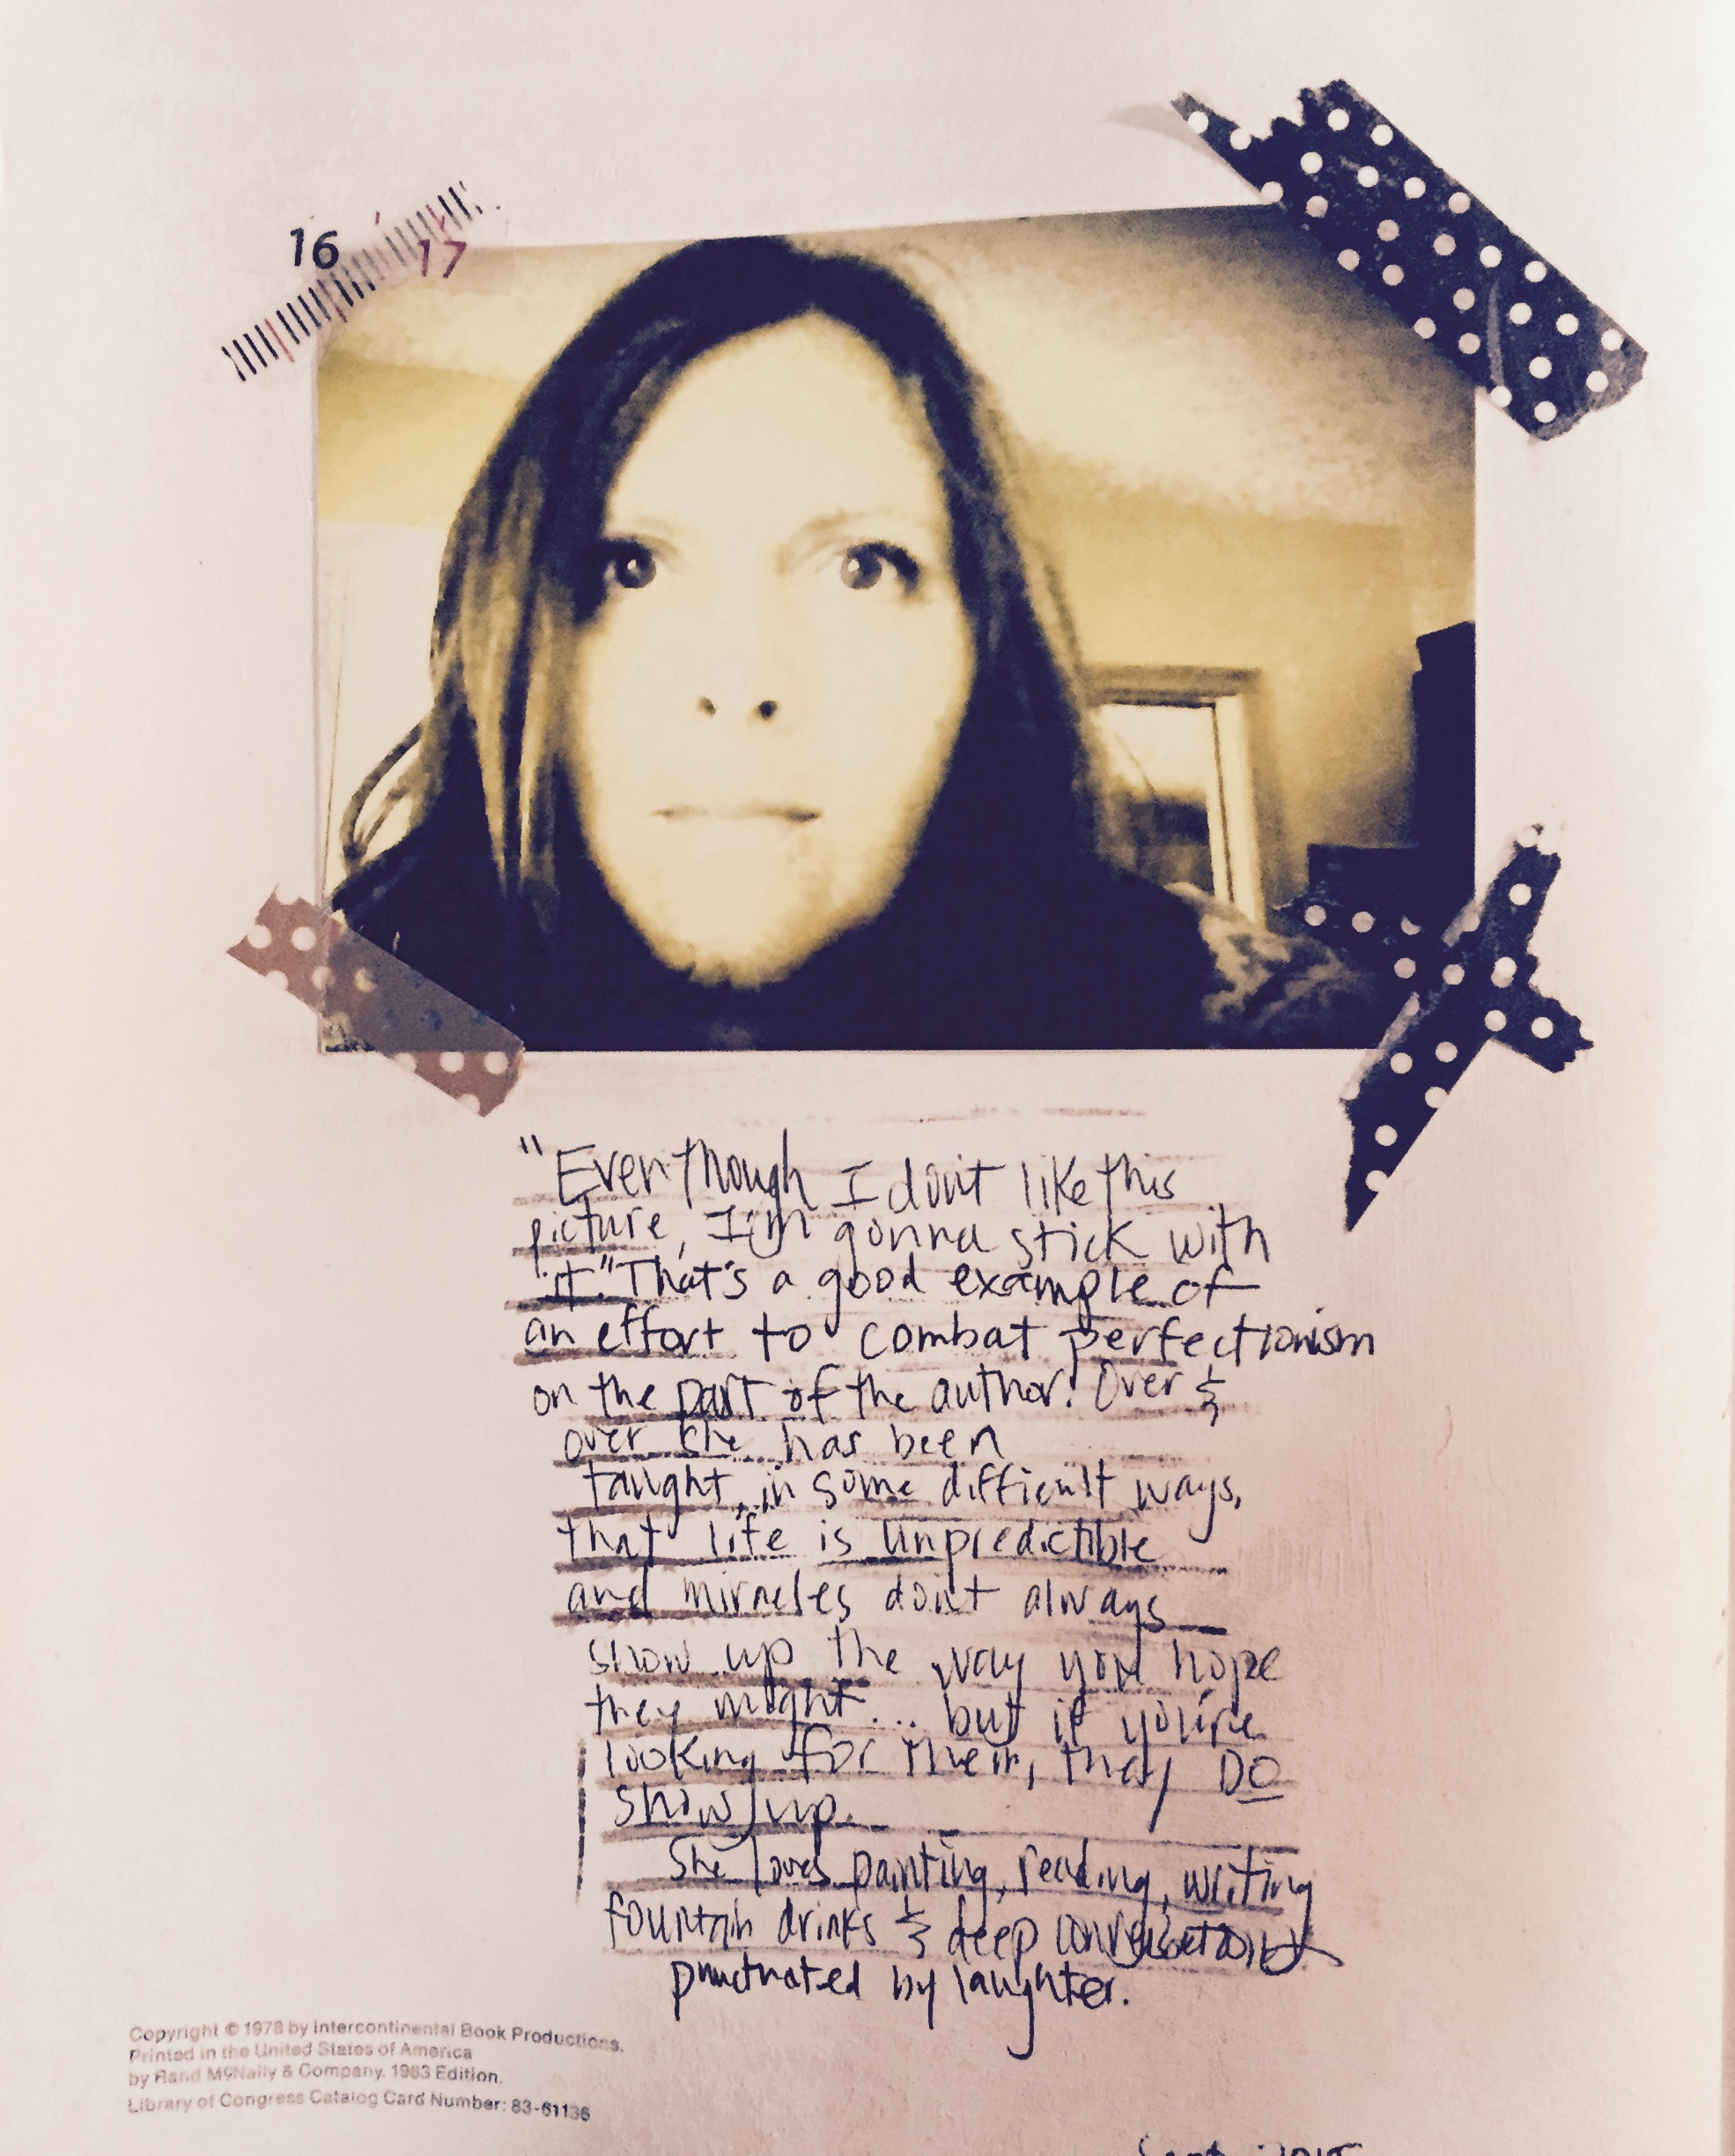 16
17
"Even though I don't like this
picture, I'm gonna stick with
it." That's a good example of
an effort to combat perfectionism
on the part of the author! Over &
over she has been
taught, in some difficult ways,
that life is unpredictible
and miracles don't always
show up the way you hope
they might... but if you're
looking for them, they DO
show up.
She loves painting, reading, writing
fountain drinks & deep conversations
punctuated by laughter.
Copyright © 1978 by Intercontinental Book Productions.
Printed in the United States of America
by Rand McNally & Company. 1983 Edition.
Library of Congress Catalog Card Number: 83-61136